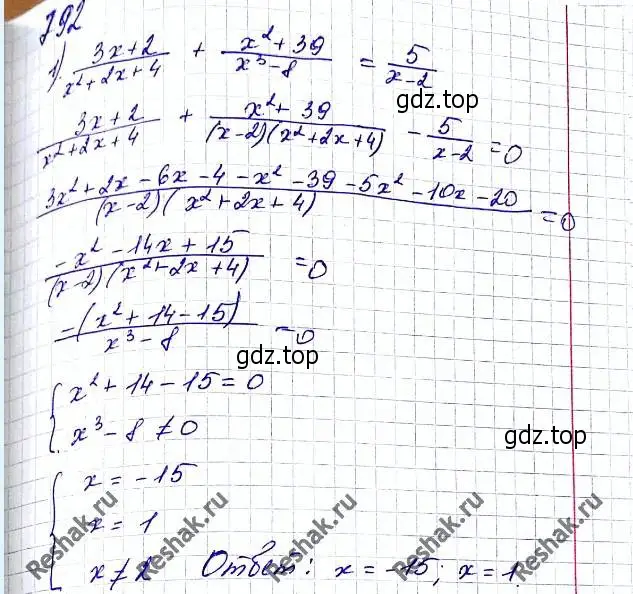 792
1) (3x+2)/(x²+2x+4) + (x²+39)/(x³-8) = 5/(x-2)
гдз.top
(3x+2)/(x²+2x+4) + (x²+39)/((x-2)(x²+2x+4)) - 5/(x-2) = 0
(3x²+2x-6x-4-x²-39-5x²-10x-20)/((x-2)(x²+2x+4)) = 0
(-x²-14x+15)/((x-2)(x²+2x+4)) = 0
(-(x²+14-15))/(x³-8) = 0
гдз.top
{ x²+14-15=0
x³-8≠0
гдз.top
{ x=-15
x=1
x≠2 Ответ: x=-15; x=1
Reshak.ru Reshak.ru Reshak.ru Reshak.ru